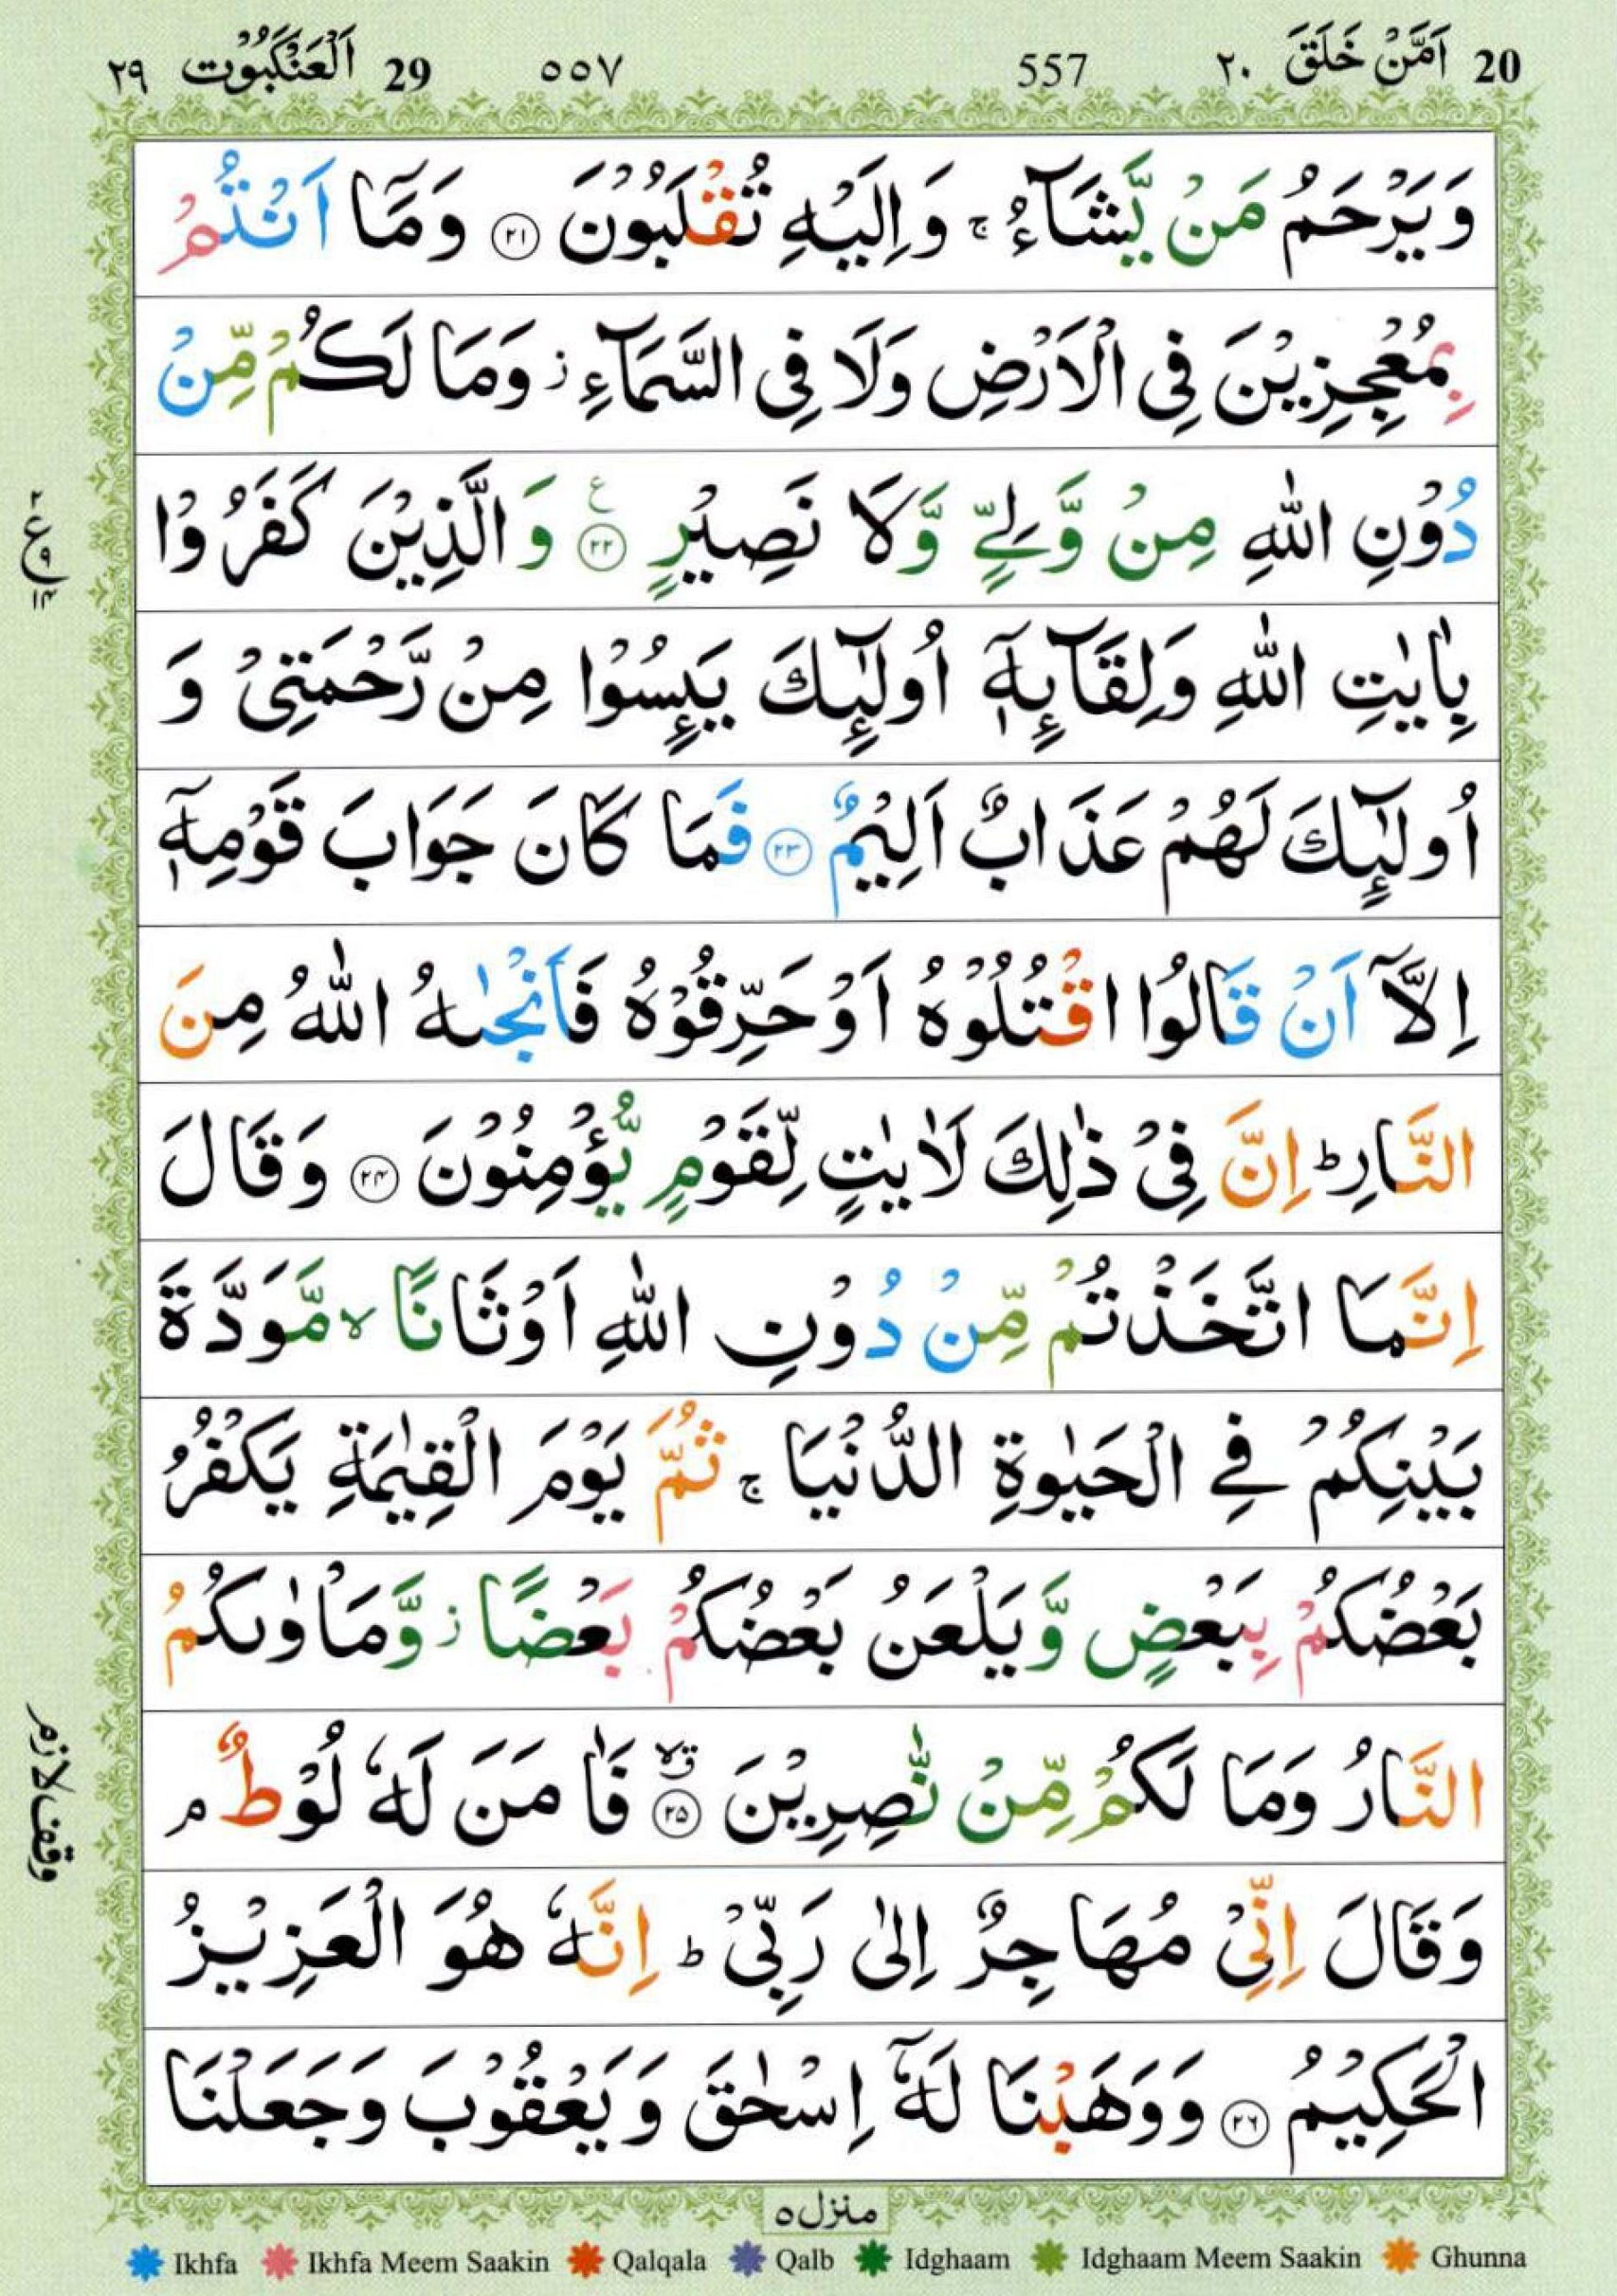 20 اَمَّنْ خَلَقَ ٢٠ 557 ٥٥٧ 29 اَلْعَنْكَبُوْت ٢٩
وَيَرْحَمُ مَنْ يَّشَآءُ ۚ وَاِلَيْهِ تُقْلَبُوْنَ ۝٢١ وَمَآ اَنْتُمْ
بِمُعْجِزِيْنَ فِى الْاَرْضِ وَلَا فِى السَّمَآءِ ز وَمَا لَكُمْ مِّنْ
دُوْنِ اللّٰهِ مِنْ وَّلِىٍّ وَّلَا نَصِيْرٍ ۝٢٢ ع وَالَّذِيْنَ كَفَرُوْا
بِاٰيٰتِ اللّٰهِ وَلِقَآئِهٖٓ اُولٰٓئِكَ يَئِسُوْا مِنْ رَّحْمَتِىْ وَ
اُولٰٓئِكَ لَهُمْ عَذَابٌ اَلِيْمٌ ۝٢٣ فَمَا كَانَ جَوَابَ قَوْمِهٖٓ
اِلَّآ اَنْ قَالُوا اقْتُلُوْهُ اَوْ حَرِّقُوْهُ فَاَنْجٰىهُ اللّٰهُ مِنَ
النَّارِ ؕ اِنَّ فِىْ ذٰلِكَ لَاٰيٰتٍ لِّقَوْمٍ يُّؤْمِنُوْنَ ۝٢٤ وَقَالَ
اِنَّمَا اتَّخَذْتُمْ مِّنْ دُوْنِ اللّٰهِ اَوْثَانًا ۙ مَّوَدَّةَ
بَيْنِكُمْ فِے الْحَيٰوةِ الدُّنْيَا ۚ ثُمَّ يَوْمَ الْقِيٰمَةِ يَكْفُرُ
بَعْضُكُمْ بِبَعْضٍ وَّيَلْعَنُ بَعْضُكُمْ بَعْضًا ز وَّمَاْوٰىكُمُ
النَّارُ وَمَا لَكُمْ مِّنْ نّٰصِرِيْنَ ۝٢٥ ق لا فَاٰمَنَ لَهٗ لُوْطٌ ۘ
وَقَالَ اِنِّىْ مُهَاجِرٌ اِلٰى رَبِّىْ ؕ اِنَّهٗ هُوَ الْعَزِيْزُ
الْحَكِيْمُ ۝٢٦ وَوَهَبْنَا لَهٗٓ اِسْحٰقَ وَيَعْقُوْبَ وَجَعَلْنَا
وقف لازم
منزل ٥
Ikhfa Ikhfa Meem Saakin Qalqala Qalb Idghaam Idghaam Meem Saakin Ghunna